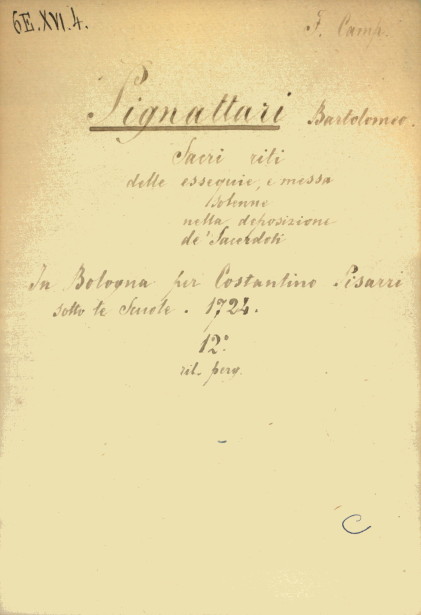 6E.XVI.4.
F. Camp.
Pignattari Bartolomeo.
Sacri riti
delle esequie, e messa
Solenne
nella deposizione
de' Sacerdoti
In Bologna per Costantino Pisarri
sotto le Scuole. 1724.
12.°
ril. perg.
C